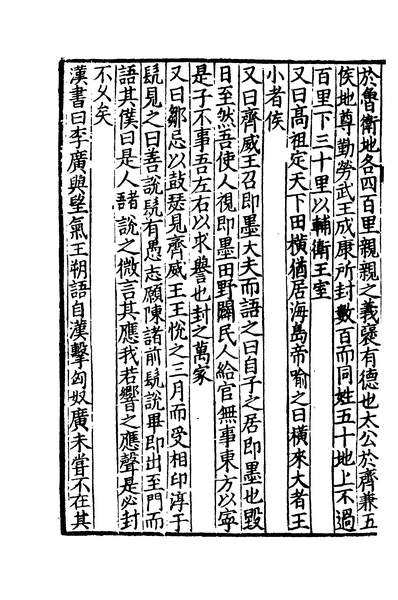 於魯衛地各四百里親親之義襃有德也太公於齊兼五
侯地尊勤勞武王成康所封數百而同姓五十地上不過
百里下三十里以輔衛王室
又曰髙祖定天下田橫猶居海島帝喻之曰橫來大者王
小者侯
又曰齊威王召即墨大夫而語之曰自子之居即墨也毀
日至然吾使人視即墨田野闢民人給官無事東方以寜
是子不事吾左右以求譽也封之萬家
又曰鄒忌以鼓瑟見齊威王王恱之三月而受相印淳于
髠見之曰善說髠有愚志願陳諸前髠說畢即出至門而
語其僕曰是人諸說之微言其應我若響之應聲是必封
不乆矣
漢書曰李廣與望氣王朔語自漢擊匈奴廣未嘗不在其